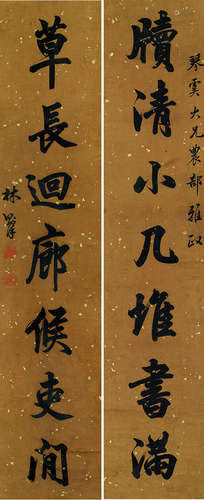 琴雲大兄農部雅政
牘清小几堆書滿
草長迴廊候吏閒
林則徐